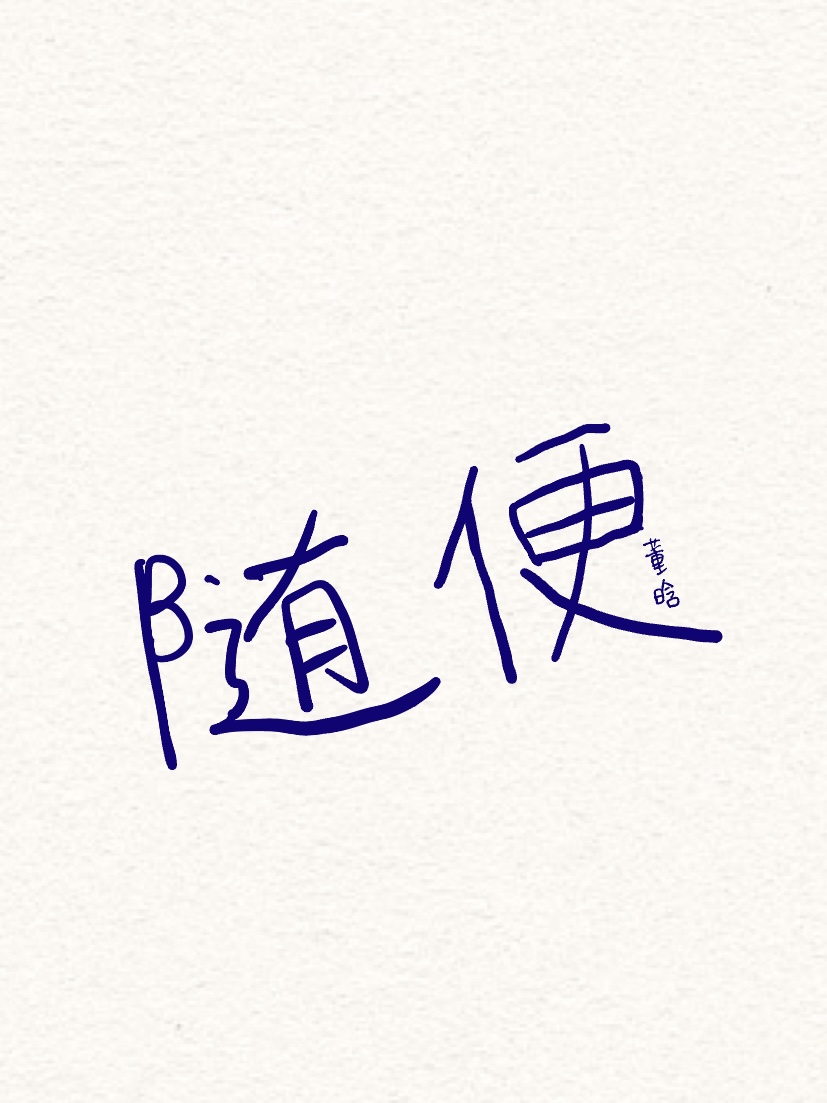 随便
董晗